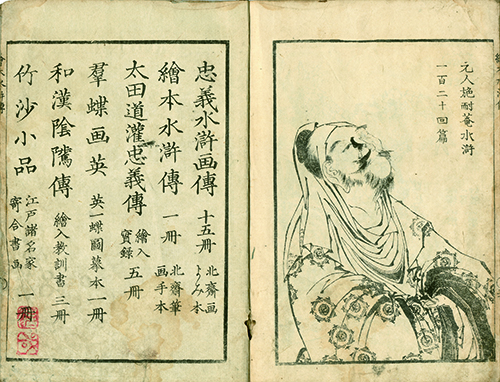 元人施耐菴水滸
一百二十回篇
忠義水滸画傳 十五冊 北齋画 よみ本
繪本水滸傳 一冊 北齋筆 画手本
太田道灌忠義傳 繪入 實録 五冊
羣蝶画英 英一蝶圖摹本 一冊
和漢陰隲傳 繪入教訓書 三冊
竹沙小品 江戸諸名家 寄合書画 一冊